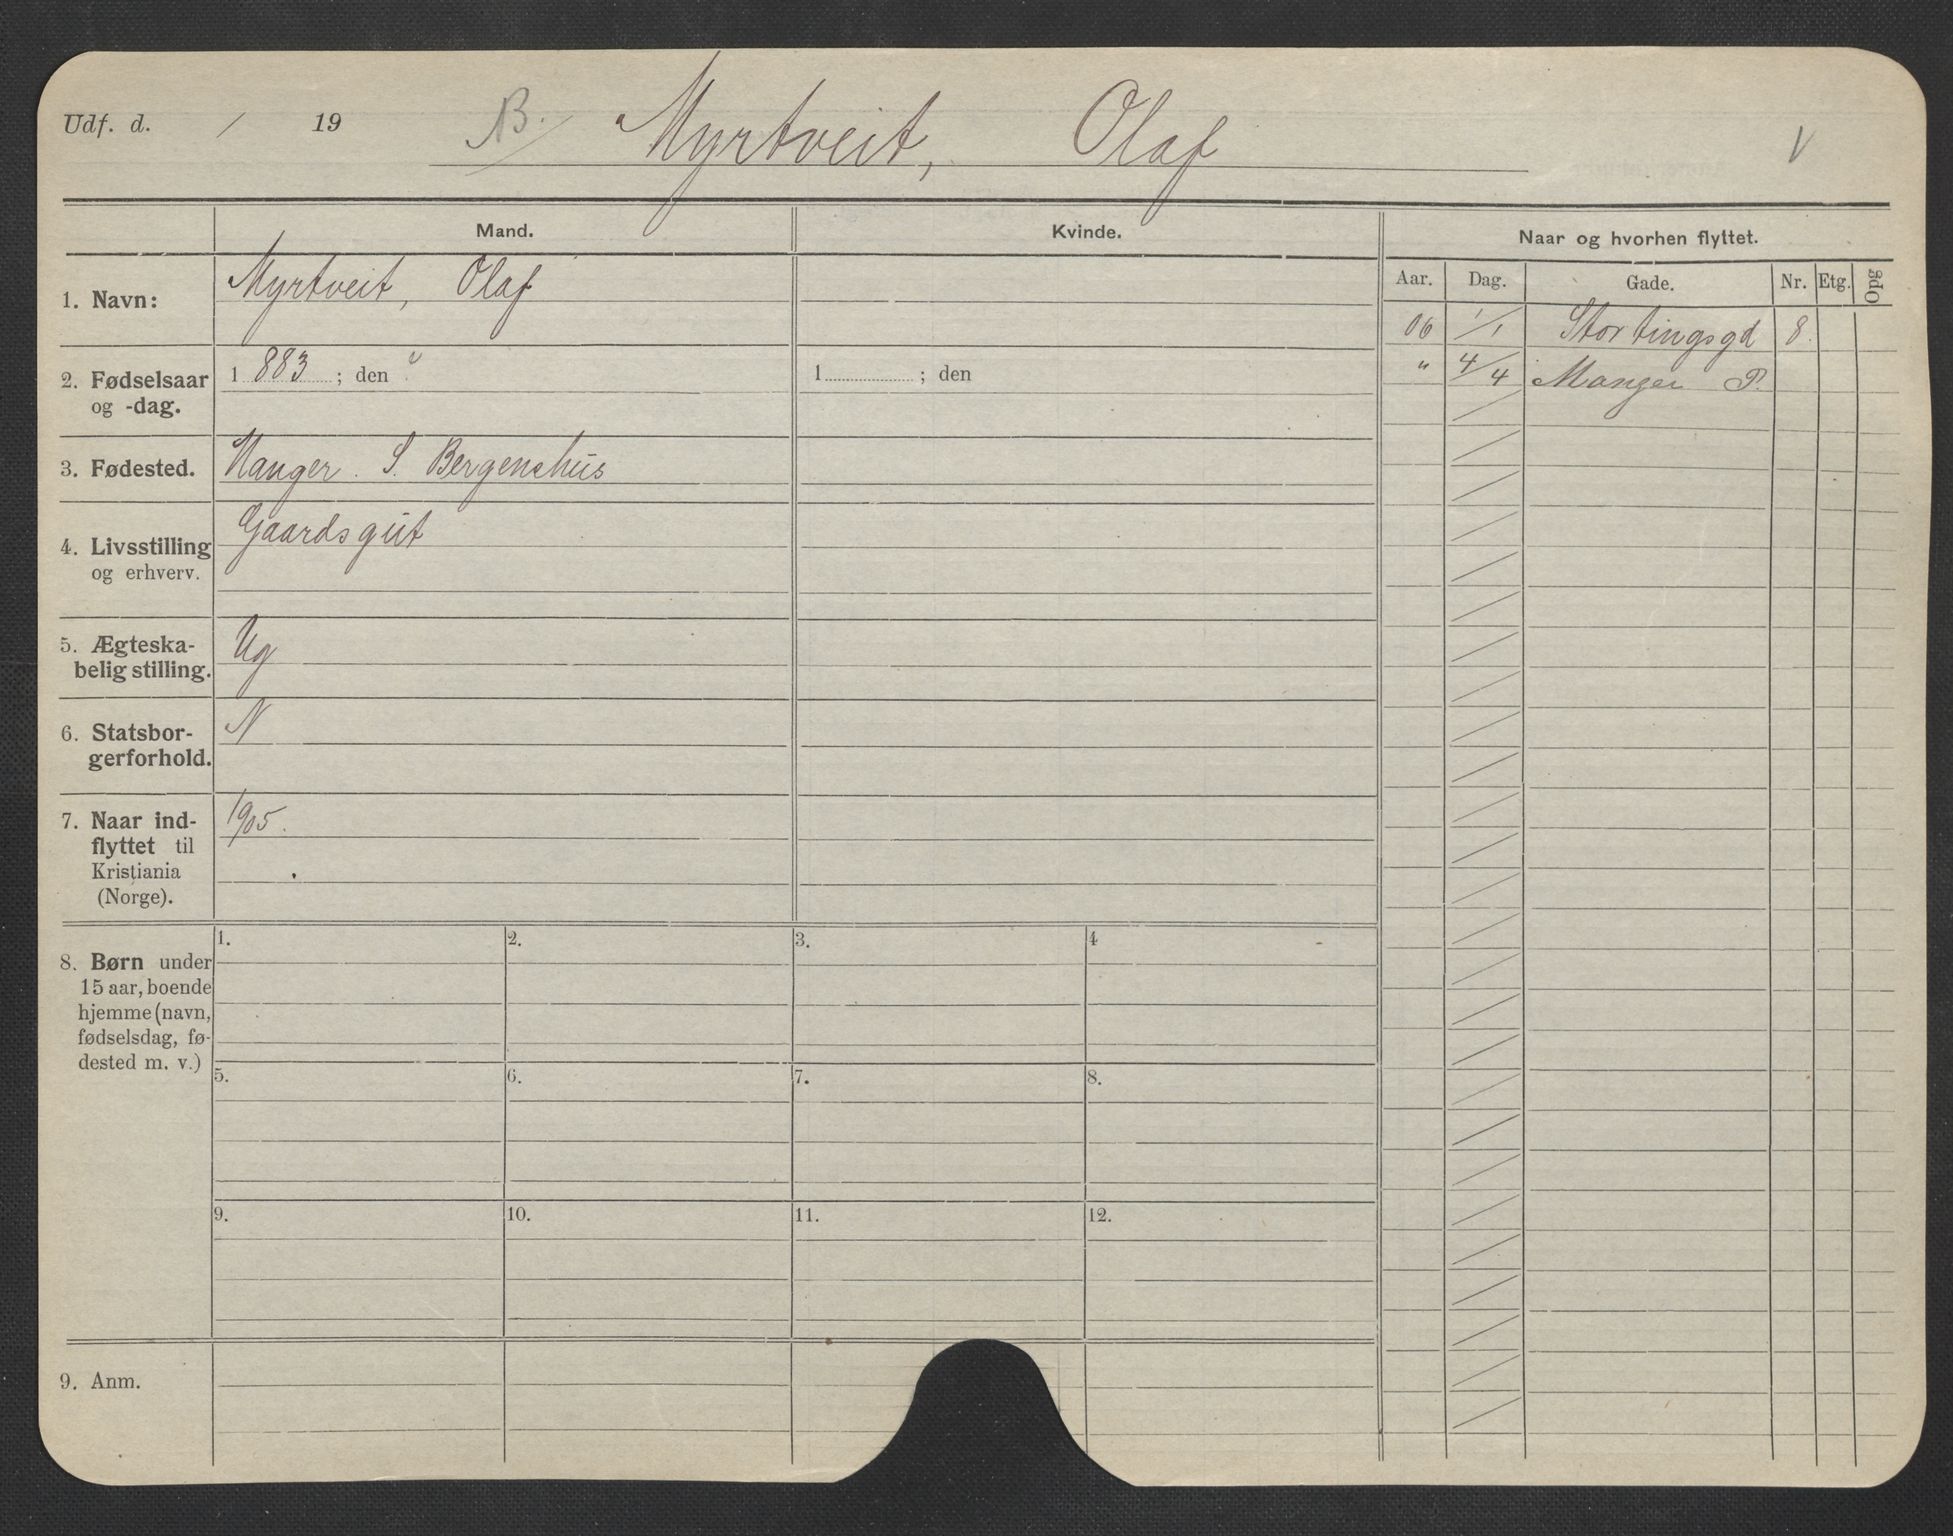 Udf. d. / 19 B. Myrtveit, Olaf V
Mand. Kvinde. Naar og hvorhen flyttet.
Aar. Dag. Gade. Nr. Etg. Opg
1. Navn: Myrtveit, Olaf
06 1/1 Stortingsgd 8.
2. Fødselsaar og -dag. 1883; den " 1 ; den
" 4/4 Manger P.
3. Fødested. Manger. S. Bergenshus
4. Livsstilling og erhverv. Gaardsgut
5. Ægteska-
belig stilling. Ug
6. Statsbor-
gerforhold. N
7. Naar ind-
flyttet til
Kristiania
(Norge). 1905.
8. Børn under
15 aar, boende
hjemme (navn,
fødselsdag, fø-
dested m. v.)
1. 2. 3. 4
5. 6. 7. 8.
9. 10. 11. 12.
9. Anm.